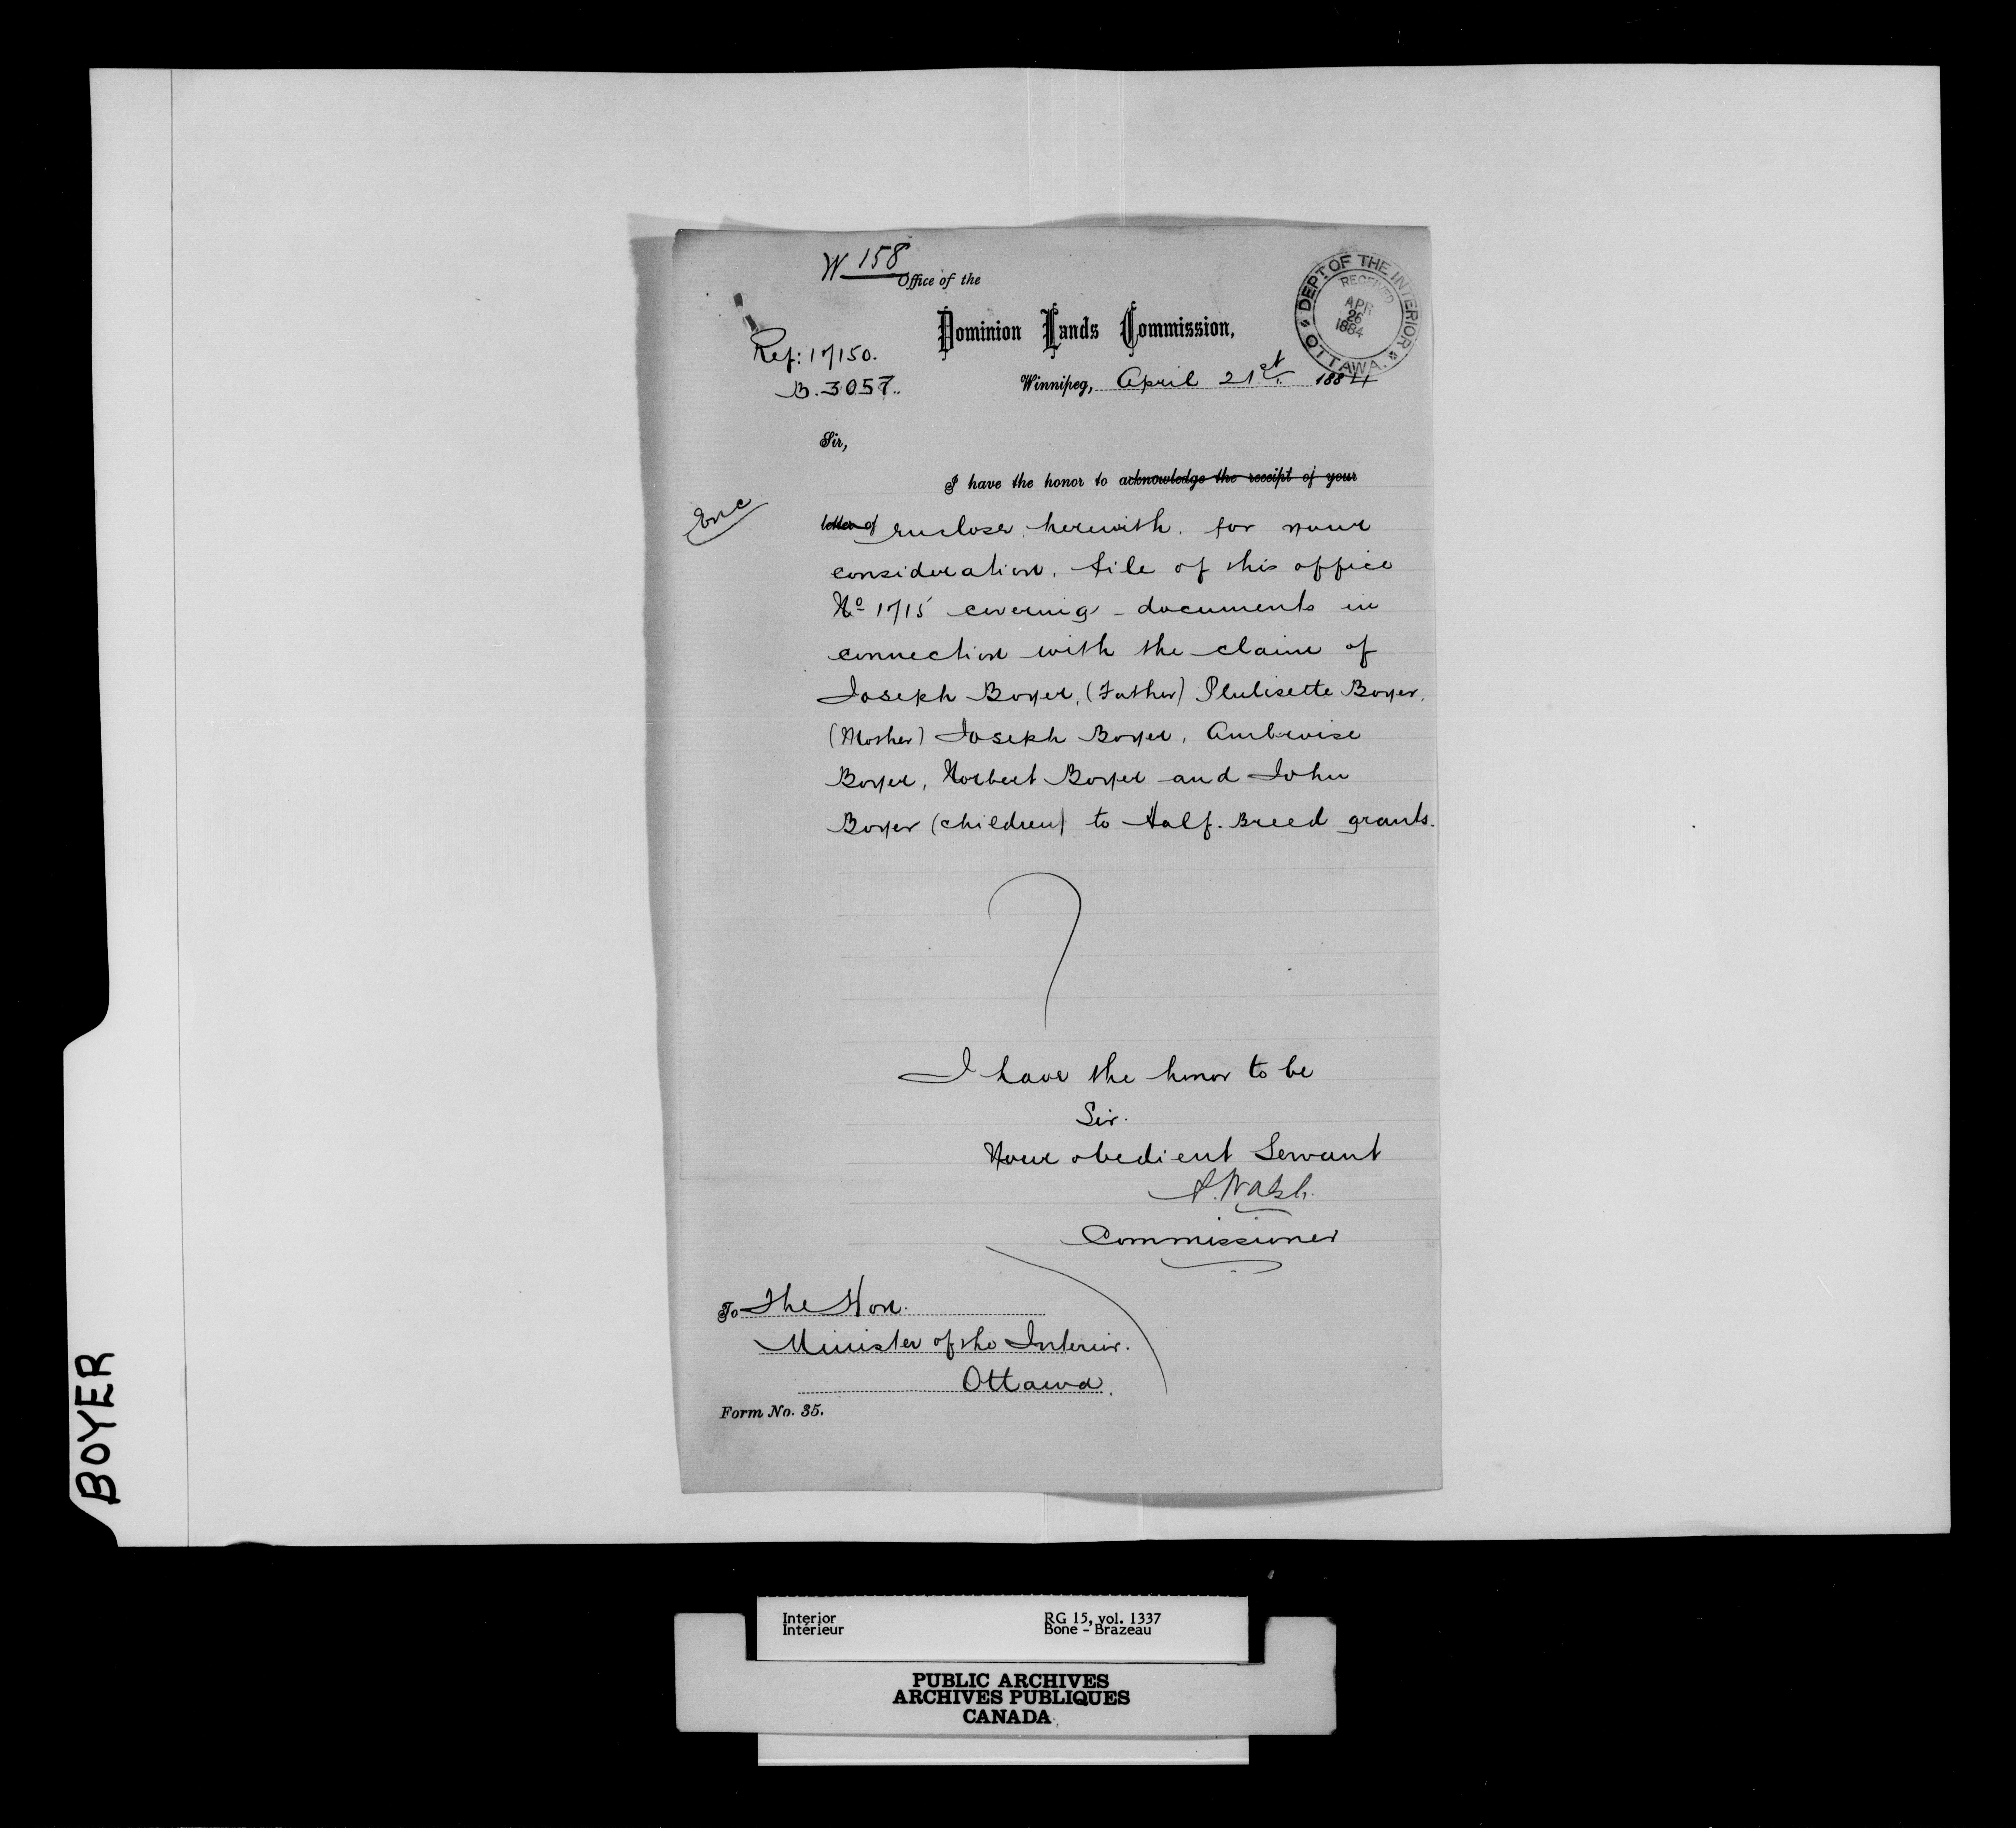 W 158
Office of the
Dominion Lands Commission,
DEPT OF THE INTERIOR
RECEIVED
APR
26
1884
OTTAWA.
Ref: 17150.
B. 3057.
Winnipeg, April 21st. 1884
Sir,
I have the honor to acknowledge the receipt of your
Enc
letter of enclose herewith, for your
consideration, file of this office
No 1715 covering documents in
connection with the claim of
Joseph Boyer, (Father) Boyer,
(Mother) Joseph Boyer, Ambroise
Boyer, Norbert Boyer and John
Boyer (children) to Half-Breed grants.
I have the honor to be
Sir.
Your obedient Servant
A. Walsh.
Commissioner
To The Hon.
Minister of the Interior.
Ottawa.
Form No. 35.
BOYER
Interior RG 15, vol. 1337
Intérieur Bone - Brazeau
PUBLIC ARCHIVES
ARCHIVES PUBLIQUES
CANADA